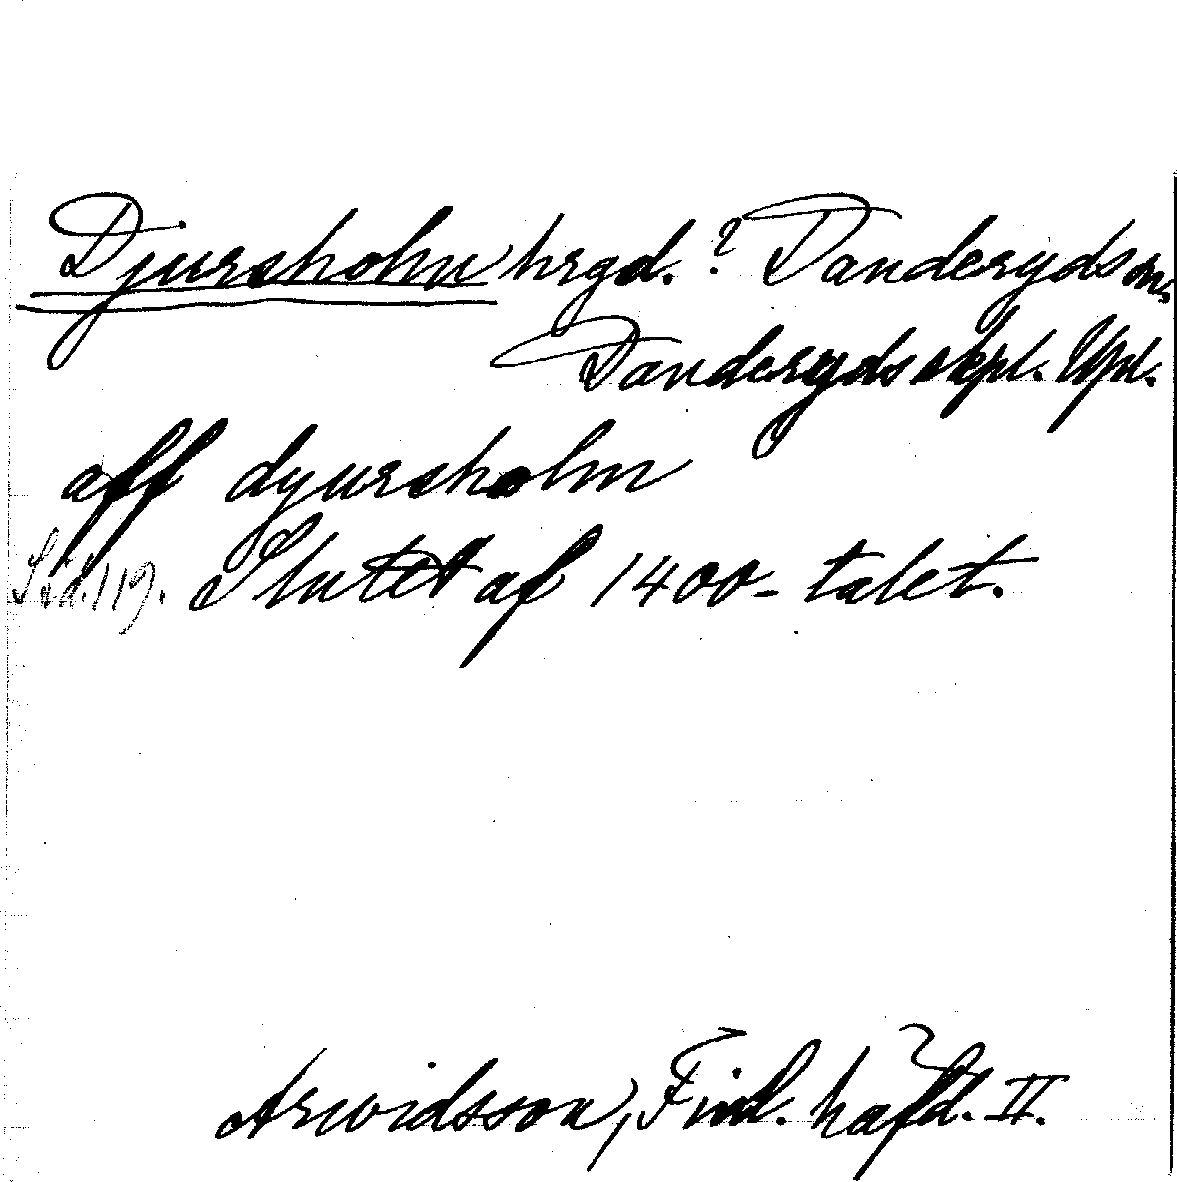 Djursholm hrgd. ? Danderyds sn,
Danderyds skpl. Upl.
aff dyursholm
Sid. 119. Slutet af 1400-talet.
Arwidsson, Finl. häfd. II.